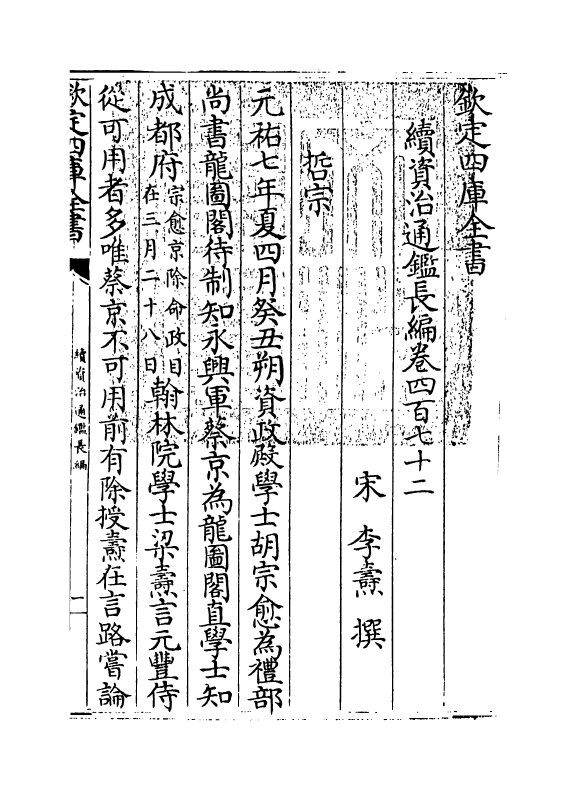 欽定四庫全書
續資治通鑑長編卷四百七十二
宋 李燾 撰
哲宗
元祐七年夏四月癸丑朔資政殿學士胡宗愈為禮部
尚書龍圖閣待制知永興軍蔡京為龍圖閣直學士知
成都府宗愈京除命政目在三月二十八日翰林院學士梁燾言元豐侍
從可用者多唯蔡京不可用前有除授燾在言路嘗論
欽定四庫全書
續資治通鑑長編